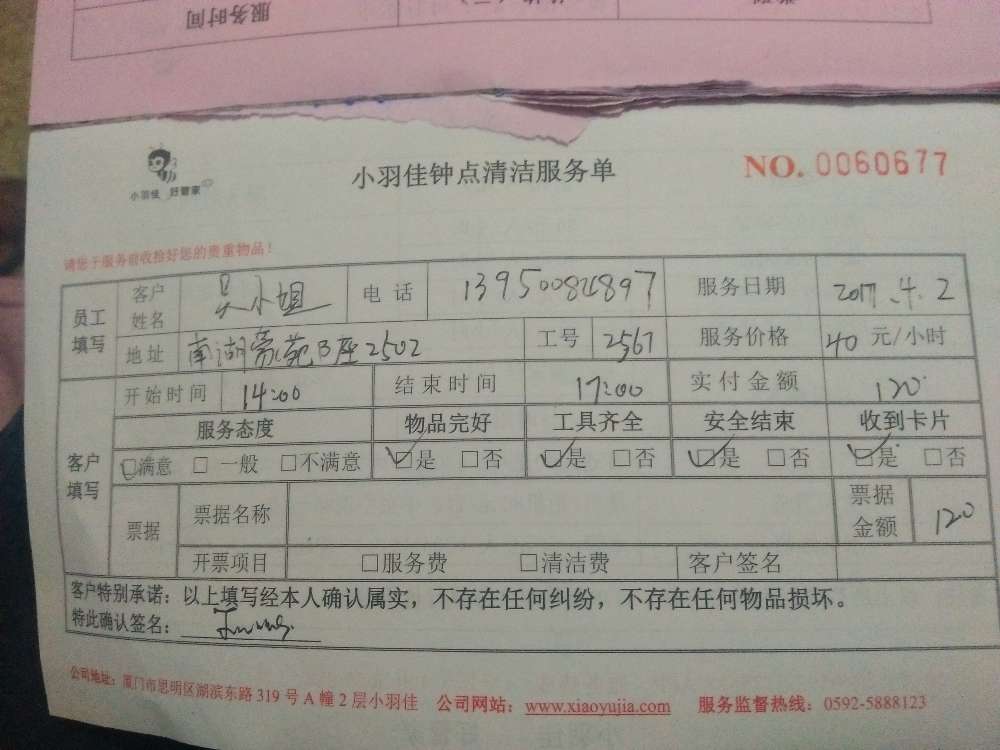 服务时间
小羽佳 好管家
小羽佳钟点清洁服务单
NO. 0060677
请您于服务前收捡好您的贵重物品！
员工填写 客户姓名 吴小姐 电话 服务日期 2017.4.2
地址 南湖豪苑B座2502 工号 2567 服务价格 40 元/小时
客户填写 开始时间 14:00 结束时间 17:00 实付金额 120
服务态度 物品完好 工具齐全 安全结束 收到卡片
□满意 □一般 □不满意 □是 □否 □是 □否 □是 □否 □是 □否
票据 票据名称 票据金额 120
开票项目 □服务费 □清洁费 客户签名
客户特别承诺：以上填写经本人确认属实，不存在任何纠纷，不存在任何物品损坏。
特此确认签名：
公司地址：厦门市思明区湖滨东路 319 号 A 幢 2 层小羽佳 公司网站：www.xiaoyujia.com 服务监督热线：0592-5888123